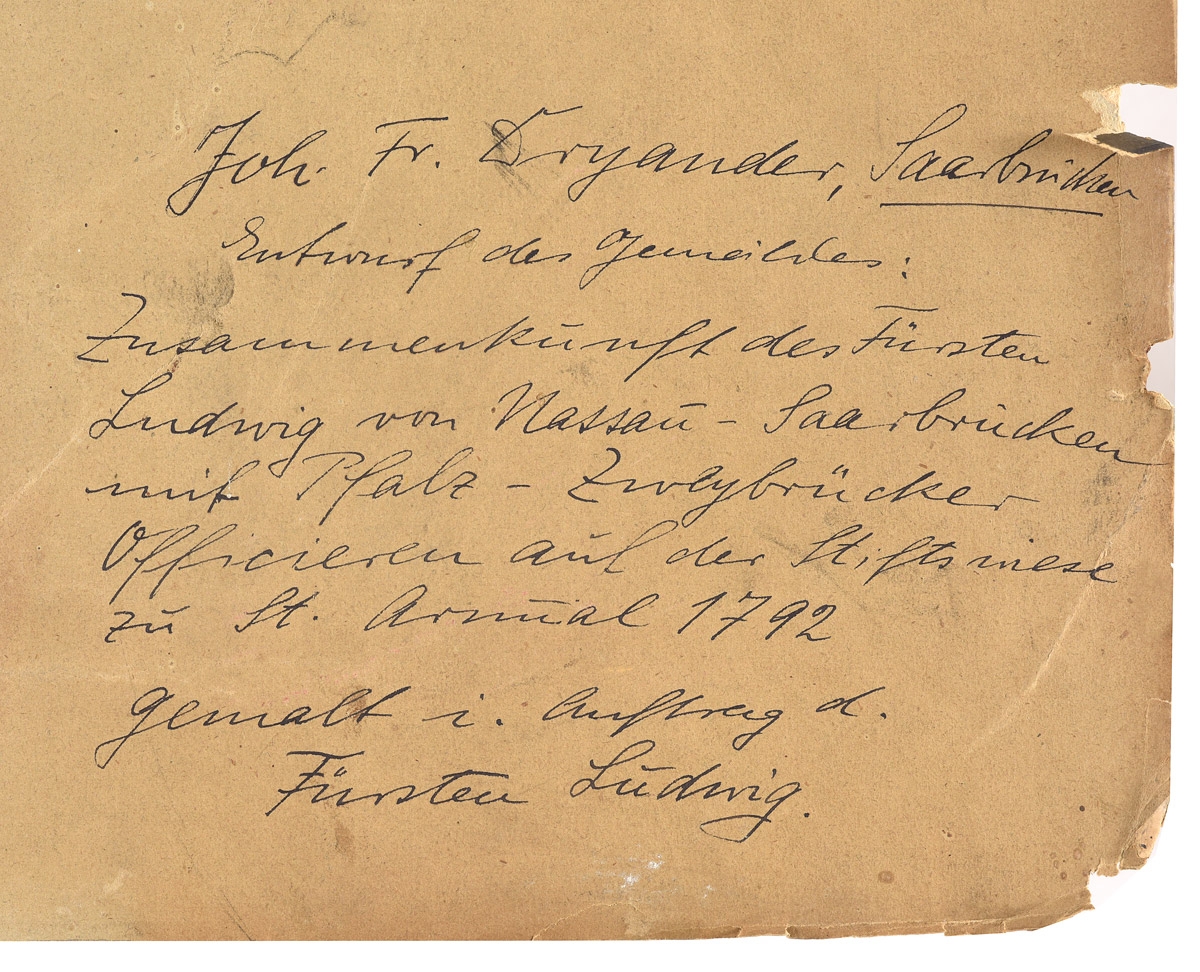 Joh. Fr. Dryander, Saarbrücken
Entwurf des Gemäldes:
Zusammenkunft des Fürsten
Ludwig von Nassau - Saarbrücken
mit Pfalz - Zweybrücker
Officieren auf der Stiftswiese
zu St. Arnual 1792
gemalt i. Auftrag d.
Fürsten Ludwig.